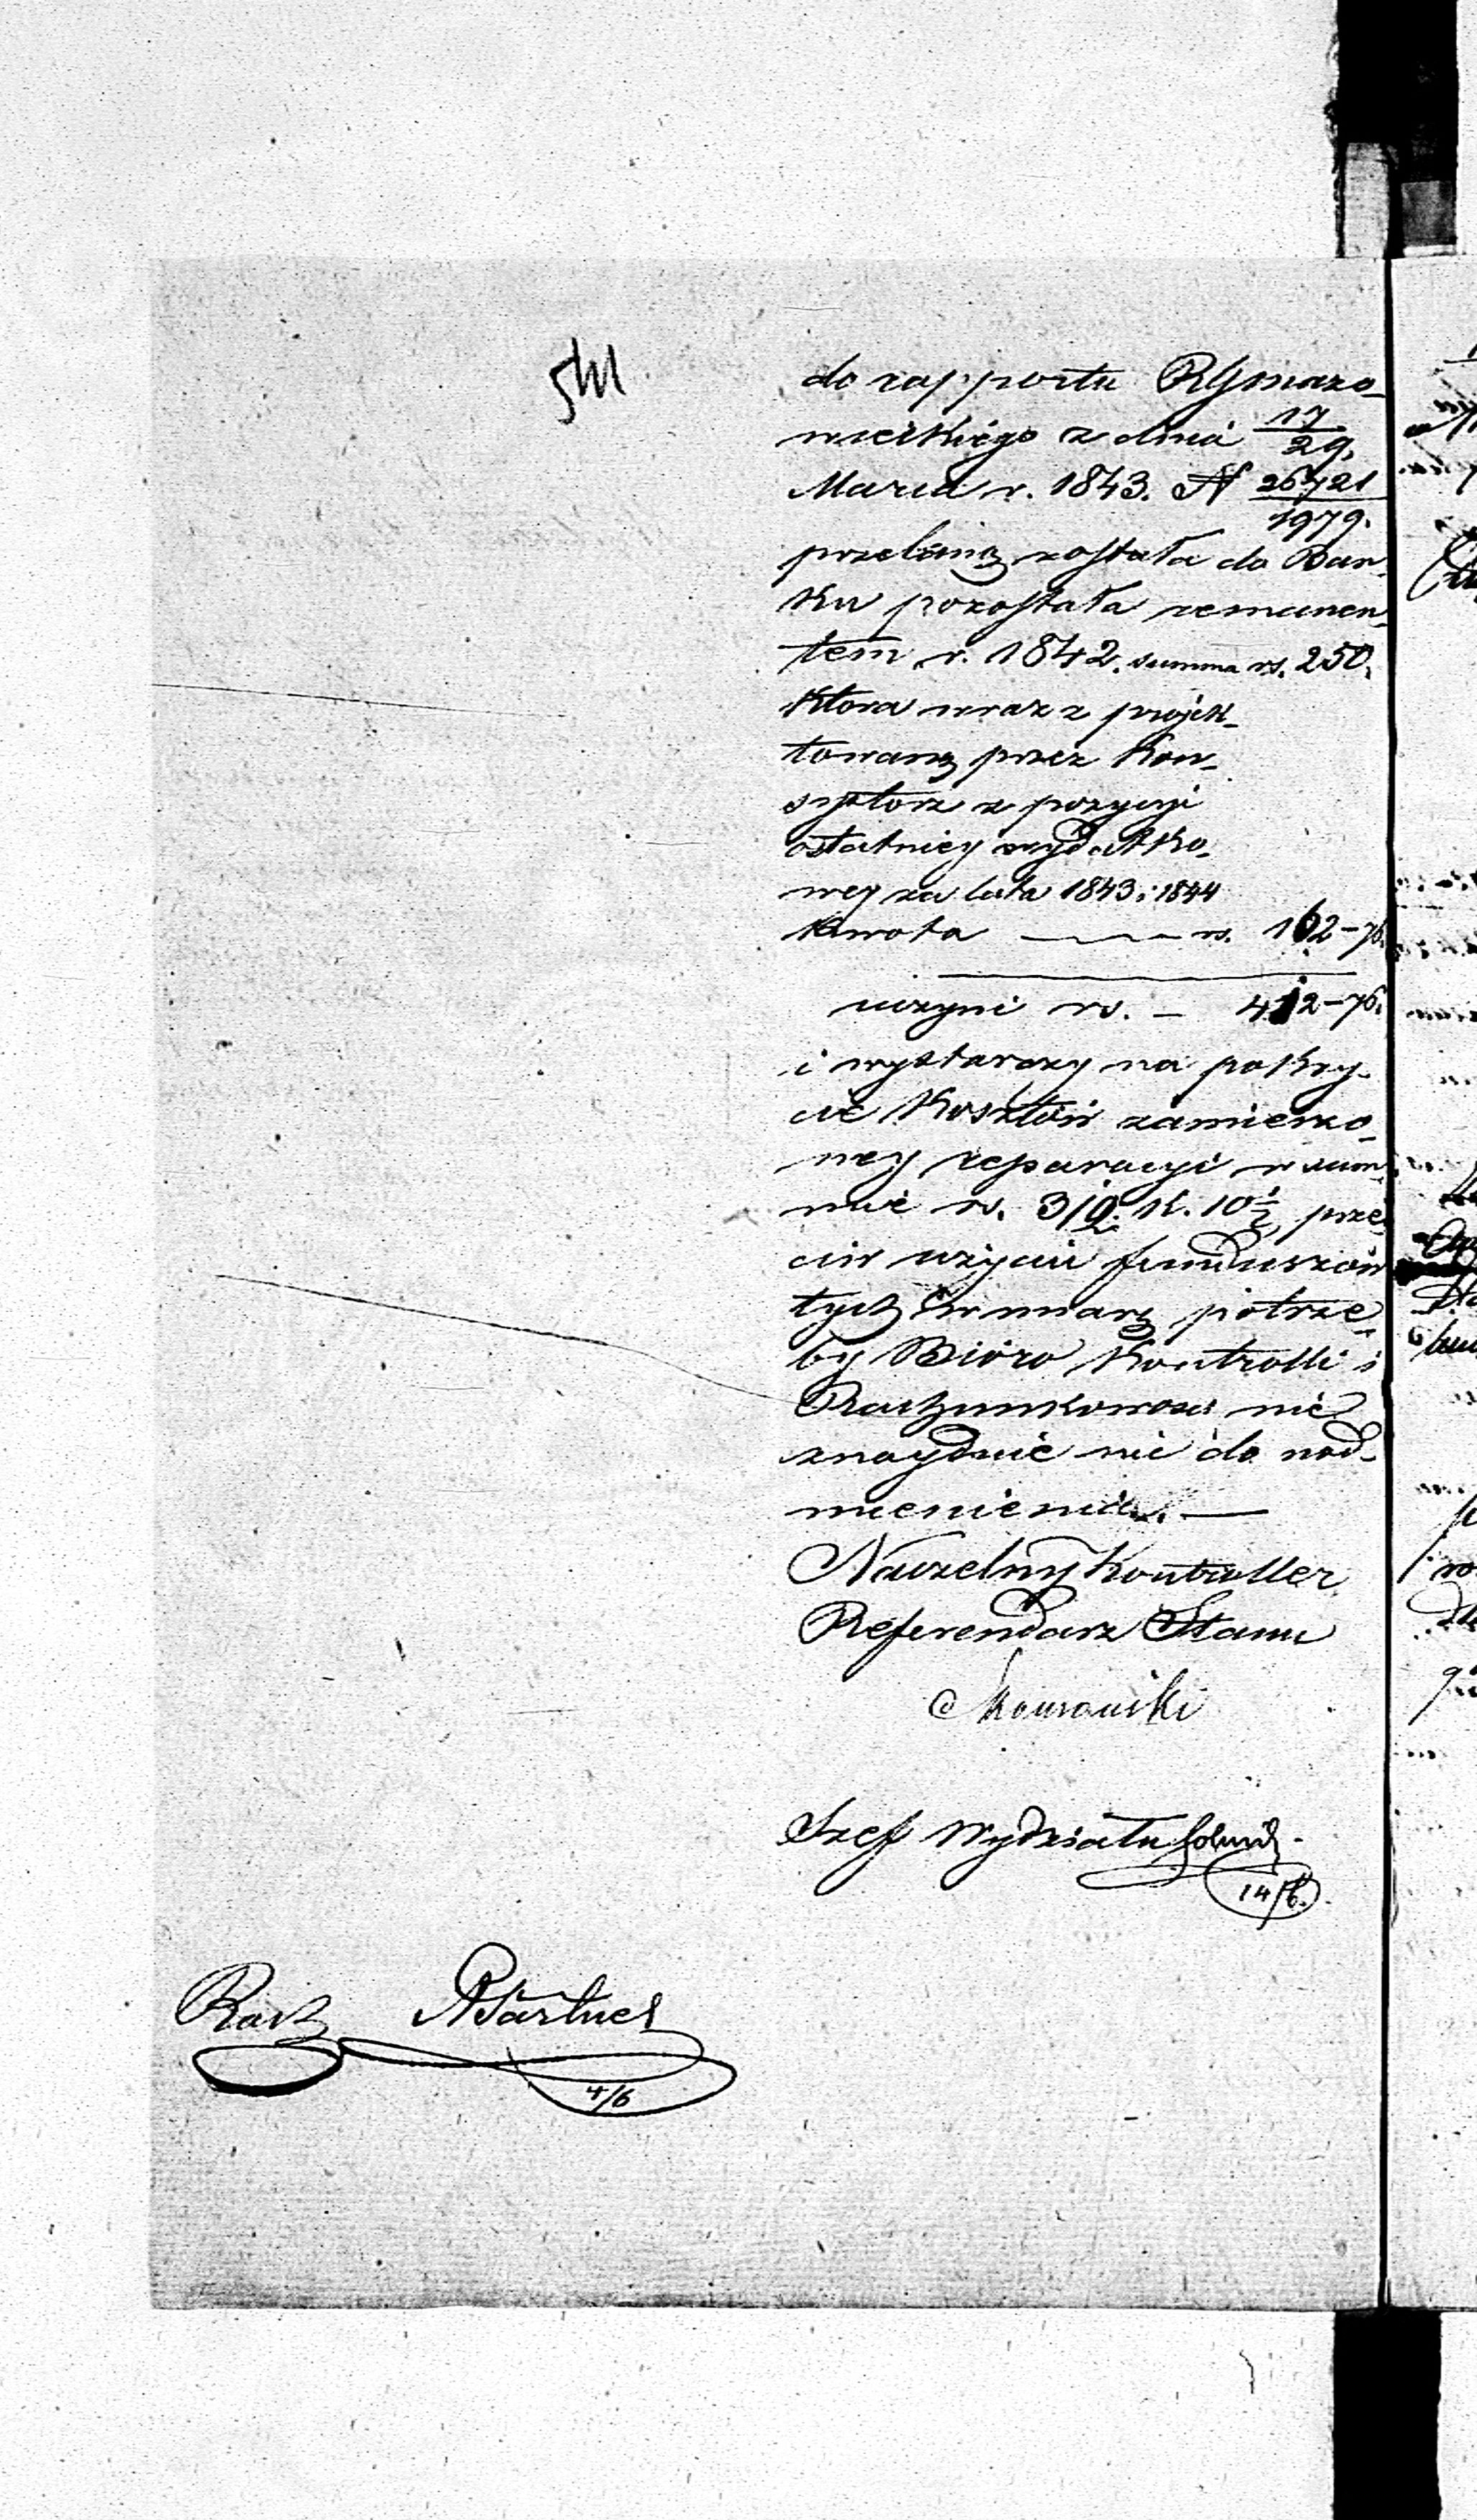 do rapportu RGmazo-
wieckiego z dnia 17/29.
Marca r. 1843. N 26721/1979.
przelaną została do Ban-
ku pozostała remanen-
tem r. 1842. summa rs. 250.
która wraz z projek-
towaną przez Kon-
systorz z pozycyi
ostatniey wydatko-
wey za lata 1843 i 1844
kwota rs. 162-76.
uczyni rs. - 412-76.
i wystarczy na pokry-
cie kosztów zamierzo-
ney reparacyi w sum-
mie rs. k. 10½, prze-
ciw użyciu funduszów
tych w miarę potrze-
by Bióro Kontrolli i
Rachunkowości nie
znayduie nic do nad-
mienienia. —
Naczelny Kontroller
Referendarz Stanu
Szef Wydziału
14/6.
Rach
4/6